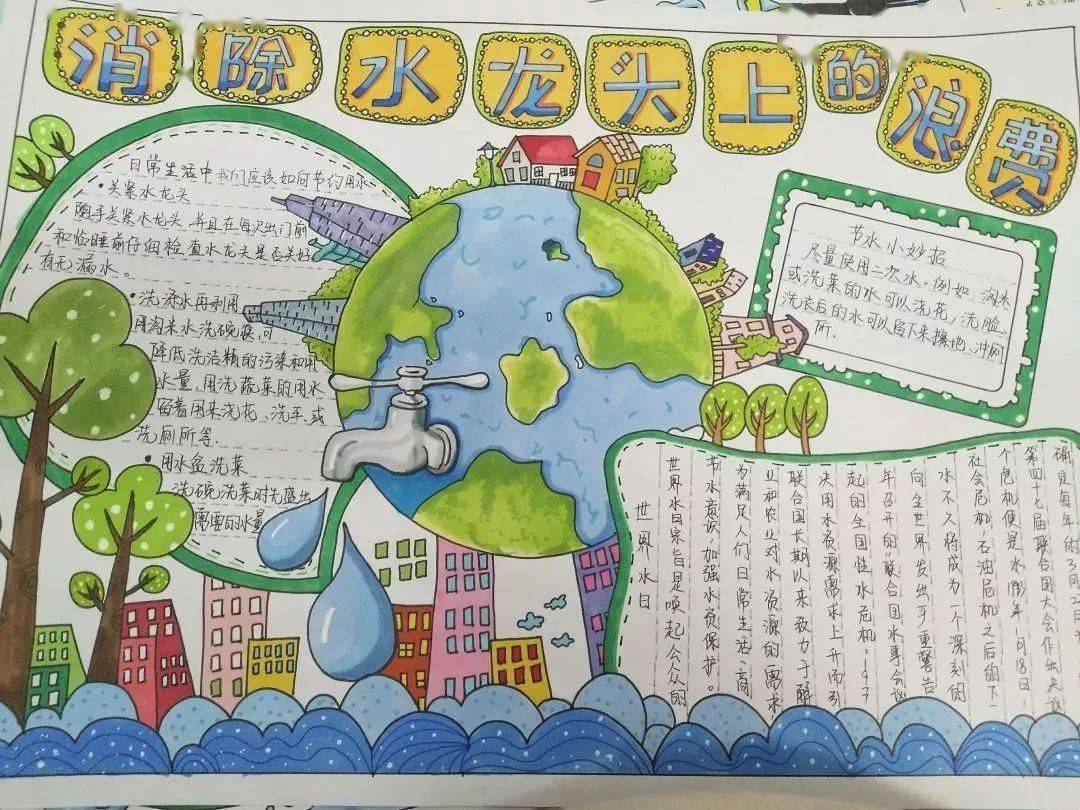 消除水龙头上的浪费
日常生活中我们应该如何节约用水
•关紧水龙头
随手关紧水龙头,并且在每次出门前
和临睡前仔细检查水龙头是否关好
有无漏水。
•洗涤水再利用
用淘米水洗碗筷,可
降低洗洁精的污染和用
水量,用洗蔬菜的用水
留着用来浇花、洗手、或
洗厕所等.
•用水盆洗菜
洗碗洗菜时先盛出
需要的水量
节水小妙招
尽量使用二次水,例如、淘米
或洗菜的水可以浇花,洗脸、
洗衣后的水可以留下来擦地、冲厕
所.
世界水日
世界水日宗旨是唤起公众的
节水意识,加强水资保护。
为满足人们日常生活、商
业和农业对水资源的需求
联合国长期以来致力于解
决用水资源需求上升而引
起的全国性水危机。197
年召开的"联合国水事会议
向全世界发出严重警告
水不久将成为一个深刻的
社会危机,石油危机之后的下
个危机便是水 年 月18日
第四十七届联合国大会作出决议
确定每年的3月2